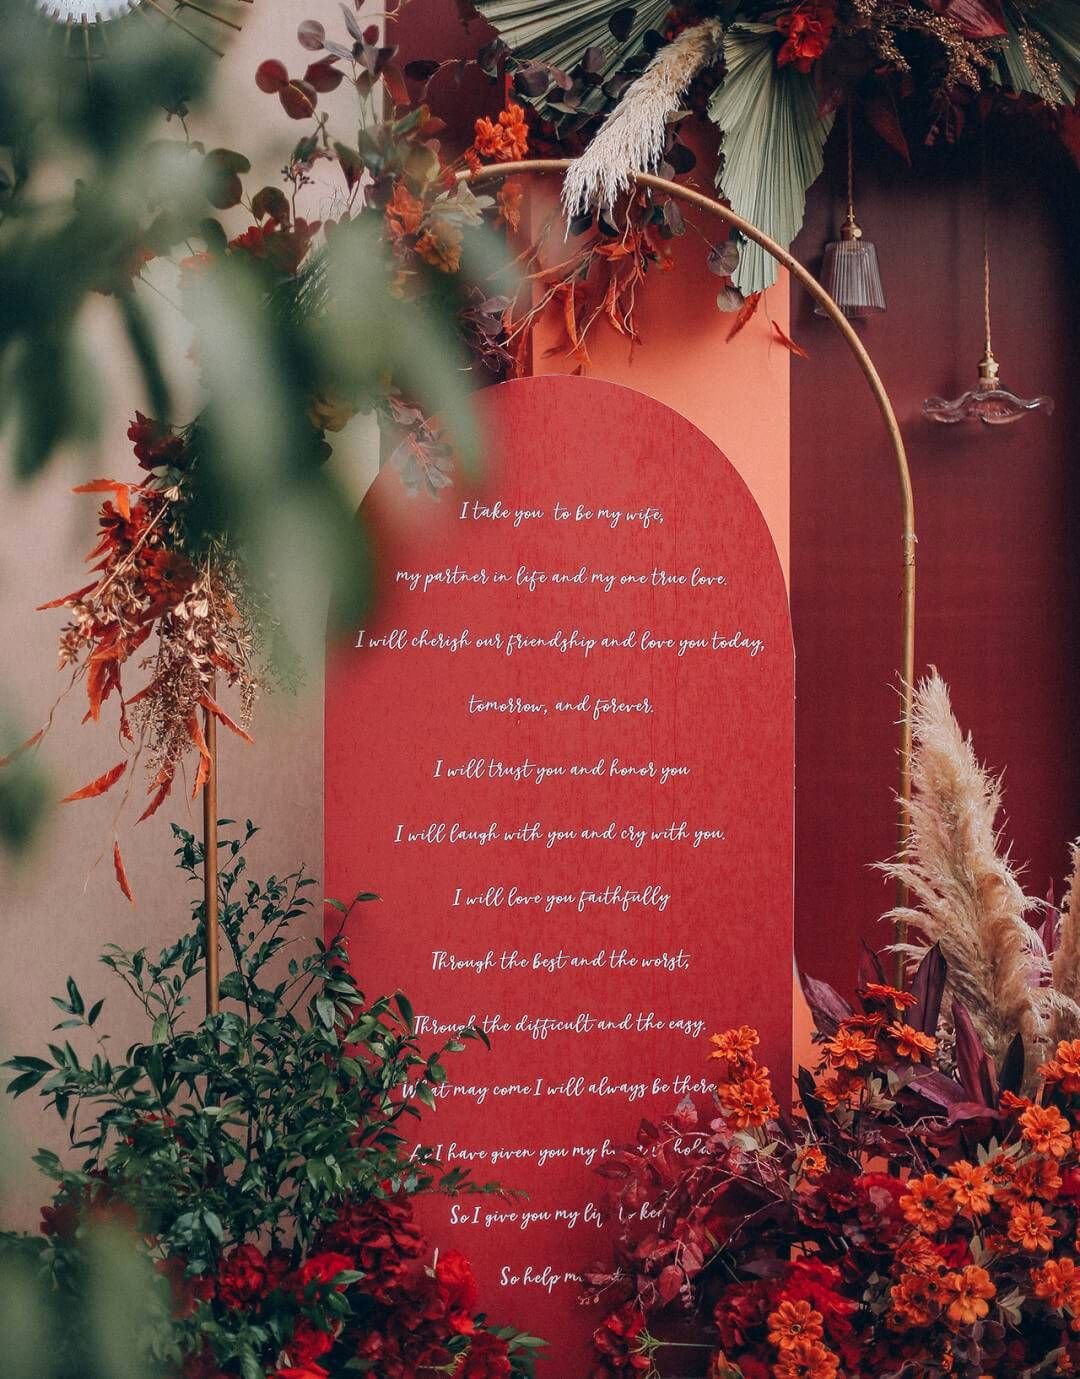 I take you to be my wife,
my partner in life and my one true love.
I will cherish our friendship and love you today,
tomorrow, and forever.
I will trust you and honor you
I will laugh with you and cry with you.
I will love you faithfully
Through the best and the worst,
Through the difficult and the easy.
What may come I will always be there.
As I have given you my
So I give you my
So help